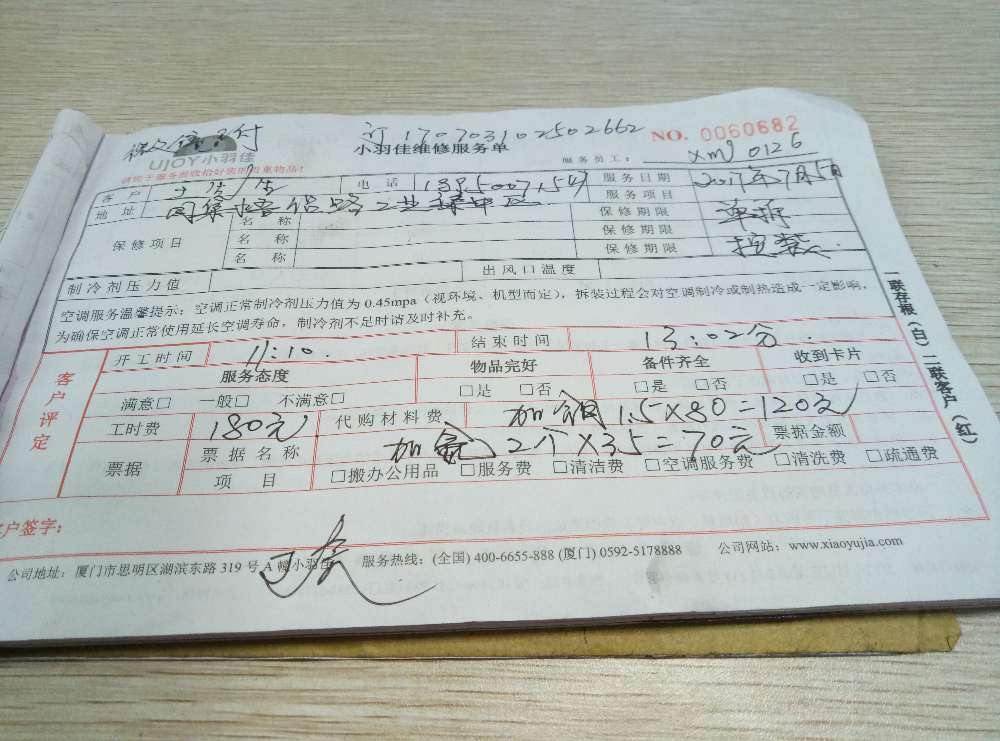 微信支付 订170703102502662 NO. 0060682
UJOY小羽佳 小羽佳维修服务单 服务员工: xm 0126
请您于服务前收拾好您的贵重物品!
客户 王先生 电话 服务日期 2017年7月5日
地址 服务项目
保修项目 名称 保修期限 单拆
名称 保修期限
名称 保修期限
制冷剂压力值 出风口温度
空调服务温馨提示:空调正常制冷剂压力值为0.45mpa(视环境、机型而定),拆装过程会对空调制冷或制热造成一定影响,
为确保空调正常使用延长空调寿命,制冷剂不足时请及时补充。
一联存根(白)二联客户(红)
客户评定
开工时间 11:10. 结束时间 13:02分
服务态度 物品完好 备件齐全 收到卡片
满意□ 一般□ 不满意□ □是 □否 □是 □否 □是 □否
工时费 180元 代购材料费 加铜1.5×80=120元
票据 票据名称 加 2个×35=70元 票据金额
项目 □搬办公用品 □服务费 □清洁费 □空调服务费 □清洗费 □疏通费
客户签字:
公司地址:厦门市思明区湖滨东路319号A幢小羽佳 服务热线:(全国)400-6655-888(厦门)0592-5178888 公司网站:www.xiaoyujia.com